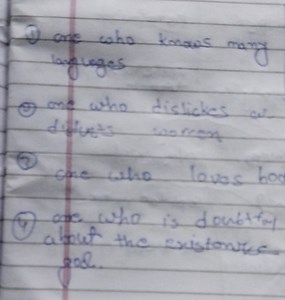 ① one who knows many
languages
② one who dislickes or
women
③
one who loves
④ one who is doubtful
about the existence
god.